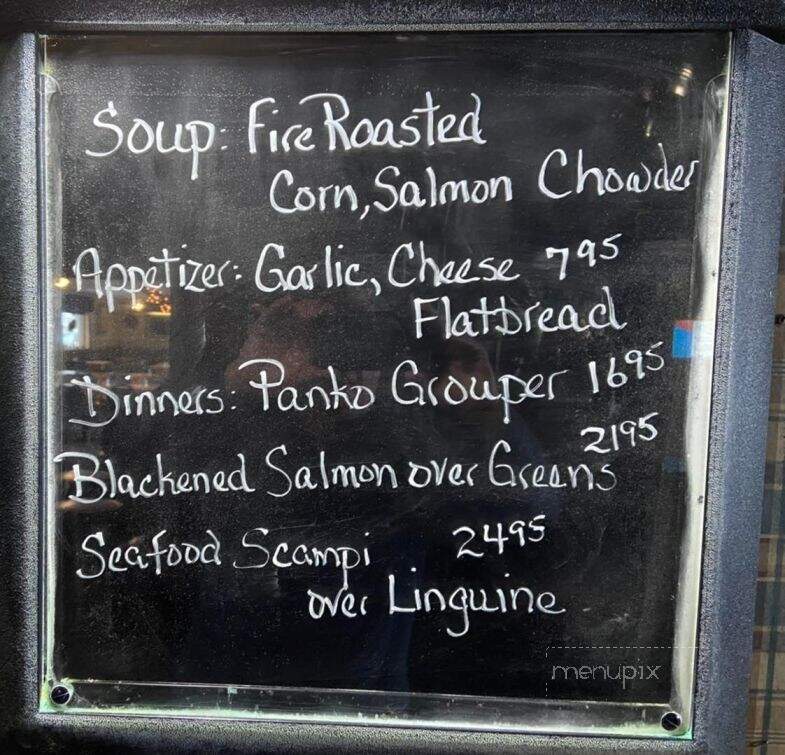 Soup: Fire Roasted
Corn, Salmon Chowder
Appetizer: Garlic, Cheese 795
Flatbread
Dinners: Panko Grouper 1695
2195
Blackened Salmon over Greens
Seafood Scampi 2495
over Linguine
menupix